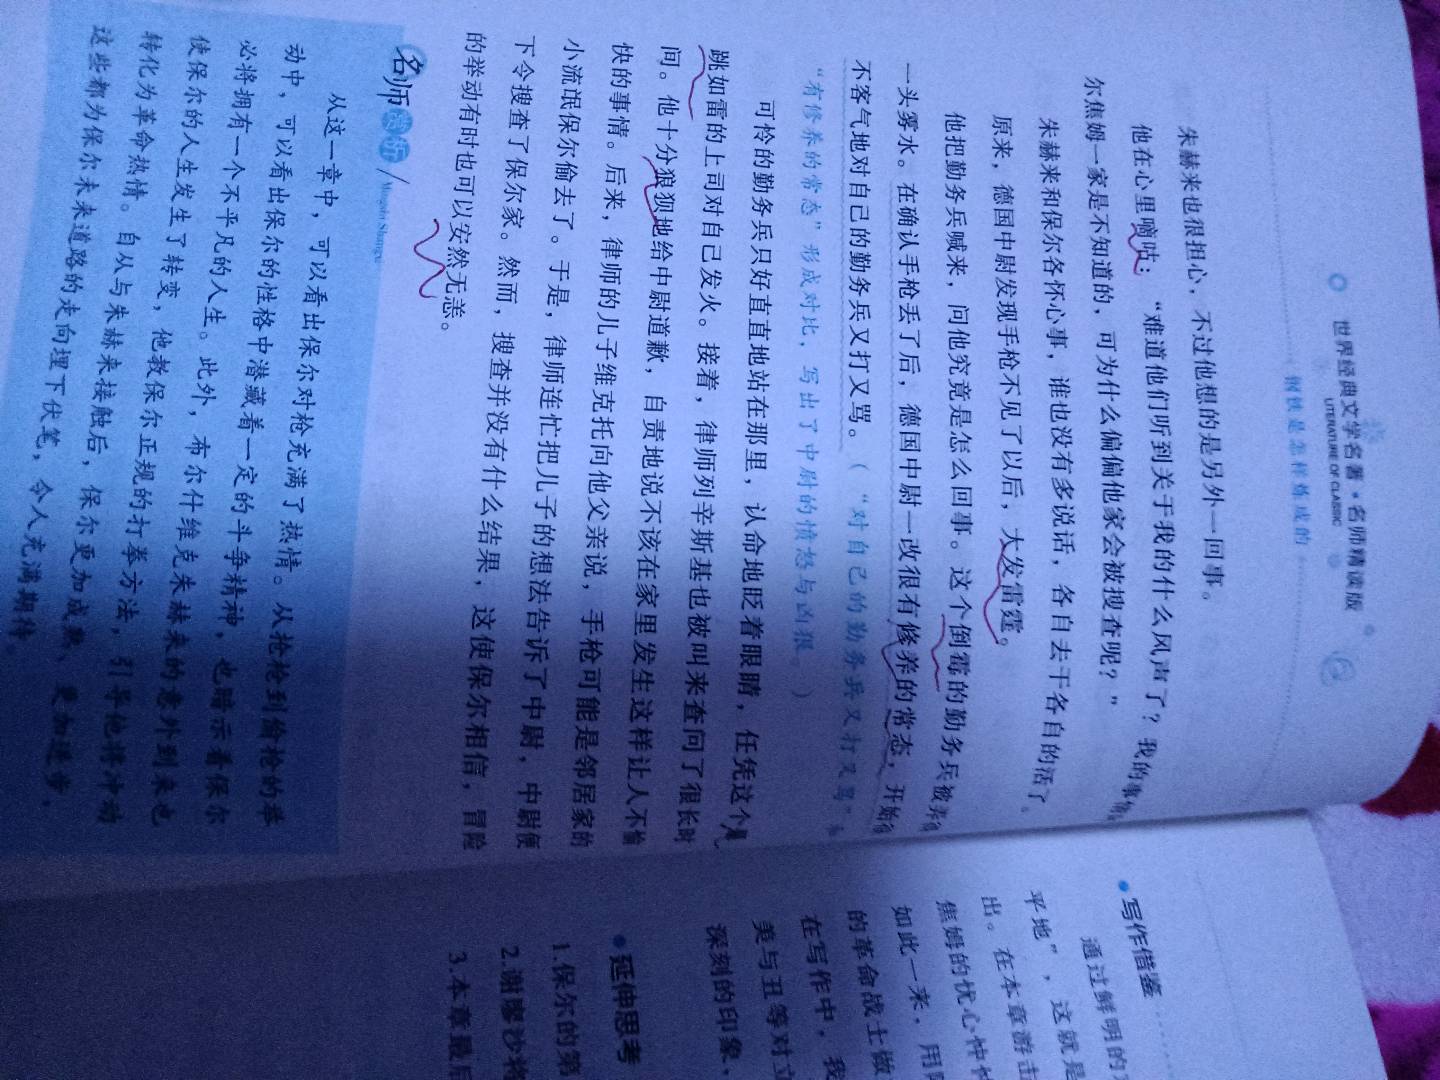 世界经典文学名著·名师精读版
LITERATURE OF CLASSIC
钢铁是怎样炼成的
朱赫来也很担心，不过他想的是另外一回事。
他在心里嘀咕：“难道他们听到关于我的什么风声了？我的事情
尔焦姆一家是不知道的，可为什么偏偏他家会被搜查呢？”
朱赫来和保尔各怀心事，谁也没有多说话，各自去干各自的活了。
原来，德国中尉发现手枪不见了以后，大发雷霆。
他把勤务兵喊来，问他究竟是怎么回事。这个倒霉的勤务兵被弄得
一头雾水。在确认手枪丢了后，德国中尉一改很有修养的常态，开始
不客气地对自己的勤务兵又打又骂。（“对自己的勤务兵又打又骂”与
“有修养的常态”形成对比，写出了中尉的愤怒与凶狠。）
可怜的勤务兵只好直直地站在那里，认命地眨着眼睛，任凭这个
跳如雷的上司对自己发火。接着，律师列辛斯基也被叫来查问了很长时
间。他十分狼狈地给中尉道歉，自责地说不该在家里发生这样让人不愉
快的事情。后来，律师的儿子维克托向他父亲说，手枪可能是邻居家的
小流氓保尔偷去了。于是，律师连忙把儿子的想法告诉了中尉，中尉便
下令搜查了保尔家。然而，搜查并没有什么结果，这使保尔相信，冒险
的举动有时也可以安然无恙。
名师赏析 / Mingshi Shangxi
从这一章中，可以看出保尔对枪充满了热情。从抢枪到偷枪的举
动中，可以看出保尔的性格中潜藏着一定的斗争精神，也暗示着保尔
必将拥有一个不平凡的人生。此外，布尔什维克朱赫来的意外到来也
使保尔的人生发生了转变，他教保尔正规的打拳方法，引导他将冲动
转化为革命热情。自从与朱赫来接触后，保尔更加成熟、更加进步，
这些都为保尔未来道路的走向埋下伏笔，令人充满期待。
写作借鉴
通过鲜明的
平地”，这就是
出。在本章游击
焦姆的忧心忡忡
如此一来，用
的革命战士做
在写作中，我
美与丑等对立
深刻的印象，
延伸思考
1.保尔的第
2.谢廖沙将
3.本章最后